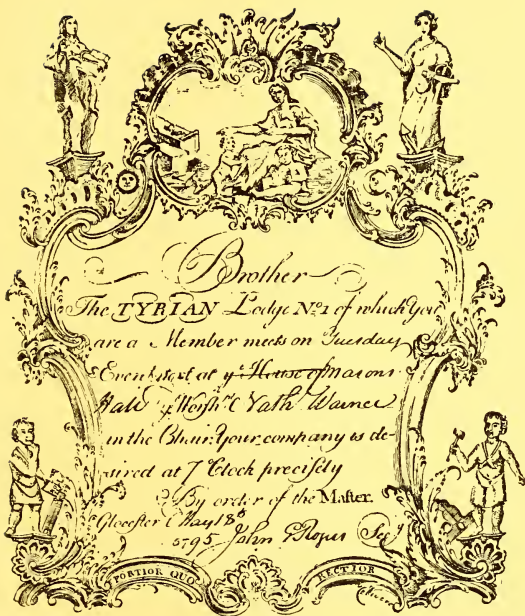 Brother
The TYRIAN Lodge Nº1 of which You
are a Member meets on Tuesday
Even next at ye House of masons
Hall ye Worshl Nath Warner
in the Chair. Your company is de-
sired at 7 Clock precisely
By order of the Master.
Glocester May 18
5795 John Rogers Secy
FORTIOR QUO RECTIOR